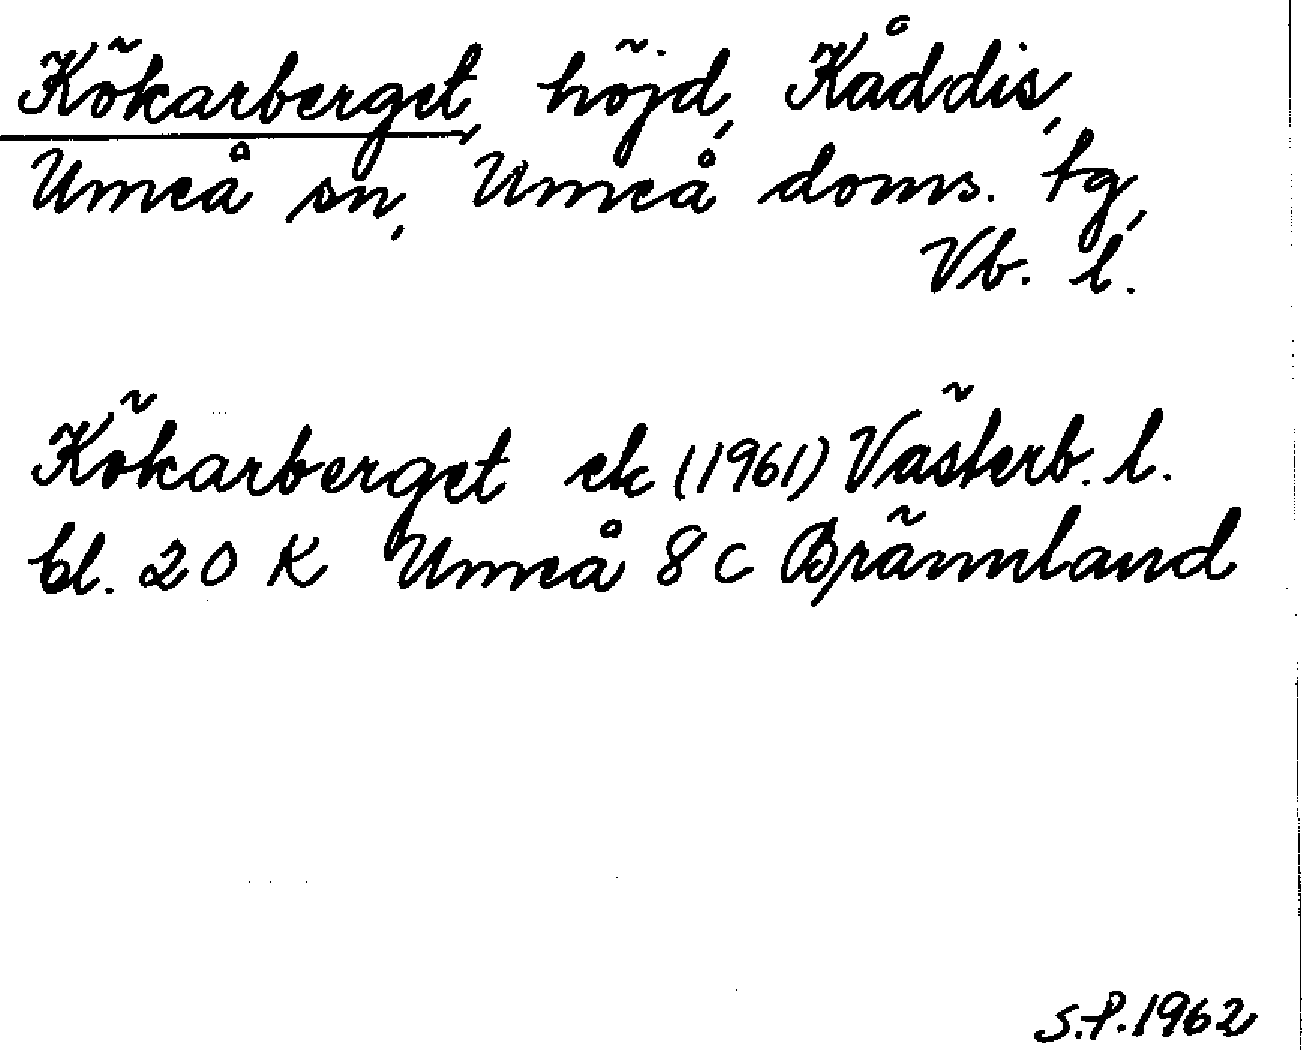 Kökarberget, höjd, Kåddis,
Umeå sn, Umeå doms. tg,
Vb. l.
Kökarberget ek (1961) Västerb. l.
bl. 20 K Umeå 8 c Brännland
S.P. 1962